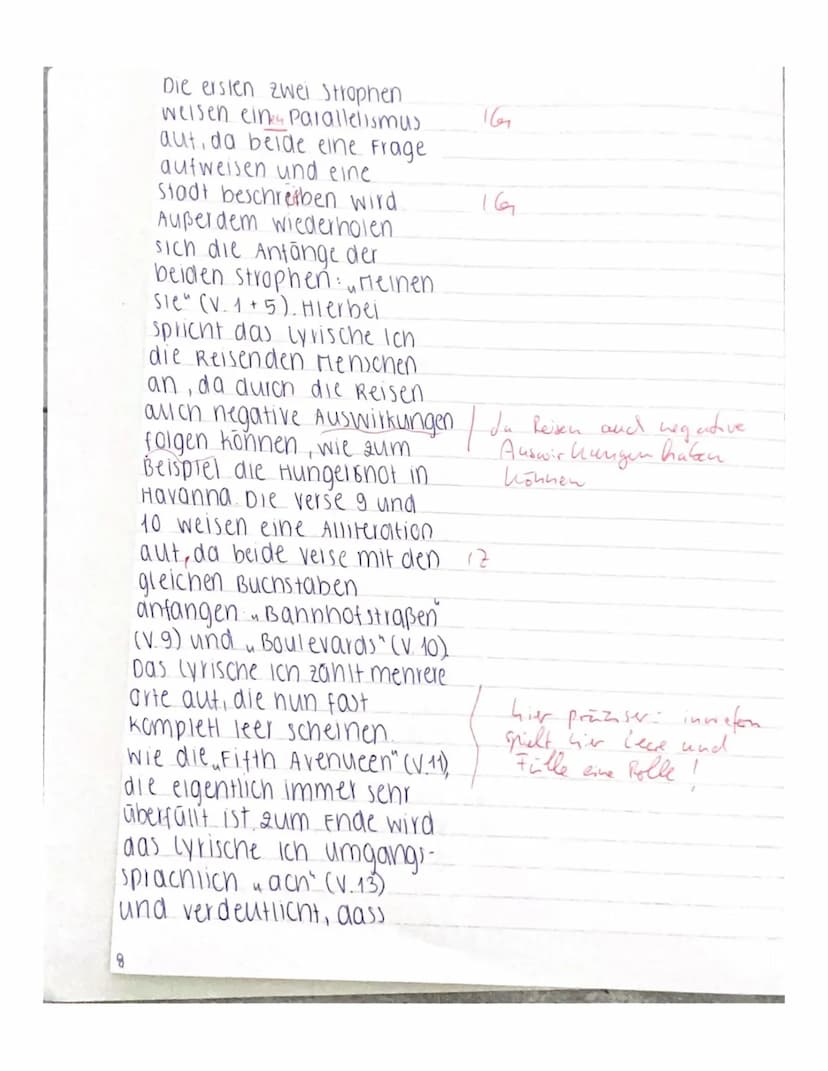 Die ersten zwei Strophen
weisen einen Parallelismus 1 Gr
auf, da beide eine Frage
aufweisen und eine
Stadt beschreiben wird. 1 Gr
Außerdem wiederholen
sich die Anfänge der
beiden Strophen: „Meinen
Sie" (V. 1+5). Hierbei
spricht das Lyrische Ich
die Reisenden Menschen
an, da durch die Reisen
auch negative Auswirkungen
folgen können, wie zum
Beispiel die Hungersnot in
Havanna. Die Verse 9 und
10 weisen eine Alliteration
auf, da beide Verse mit den 1 Z
gleichen Buchstaben
anfangen „Bahnhofstraßen"
(V.9) und „Boulevards" (V. 10).
Das Lyrische Ich zählt mehrere
Orte auf, die nun fast
komplett leer scheinen.
Wie die „Fifth Avenueen" (V.11),
die eigentlich immer sehr
überfüllt ist. Zum Ende wird
das Lyrische Ich umgangs-
sprachlich „ach" (V.13)
und verdeutlicht, dass
8
da Reisen auch negative
Auswirkungen haben
können
hier präziser: inwiefern
spielt hier Leere und
Fülle eine Rolle!